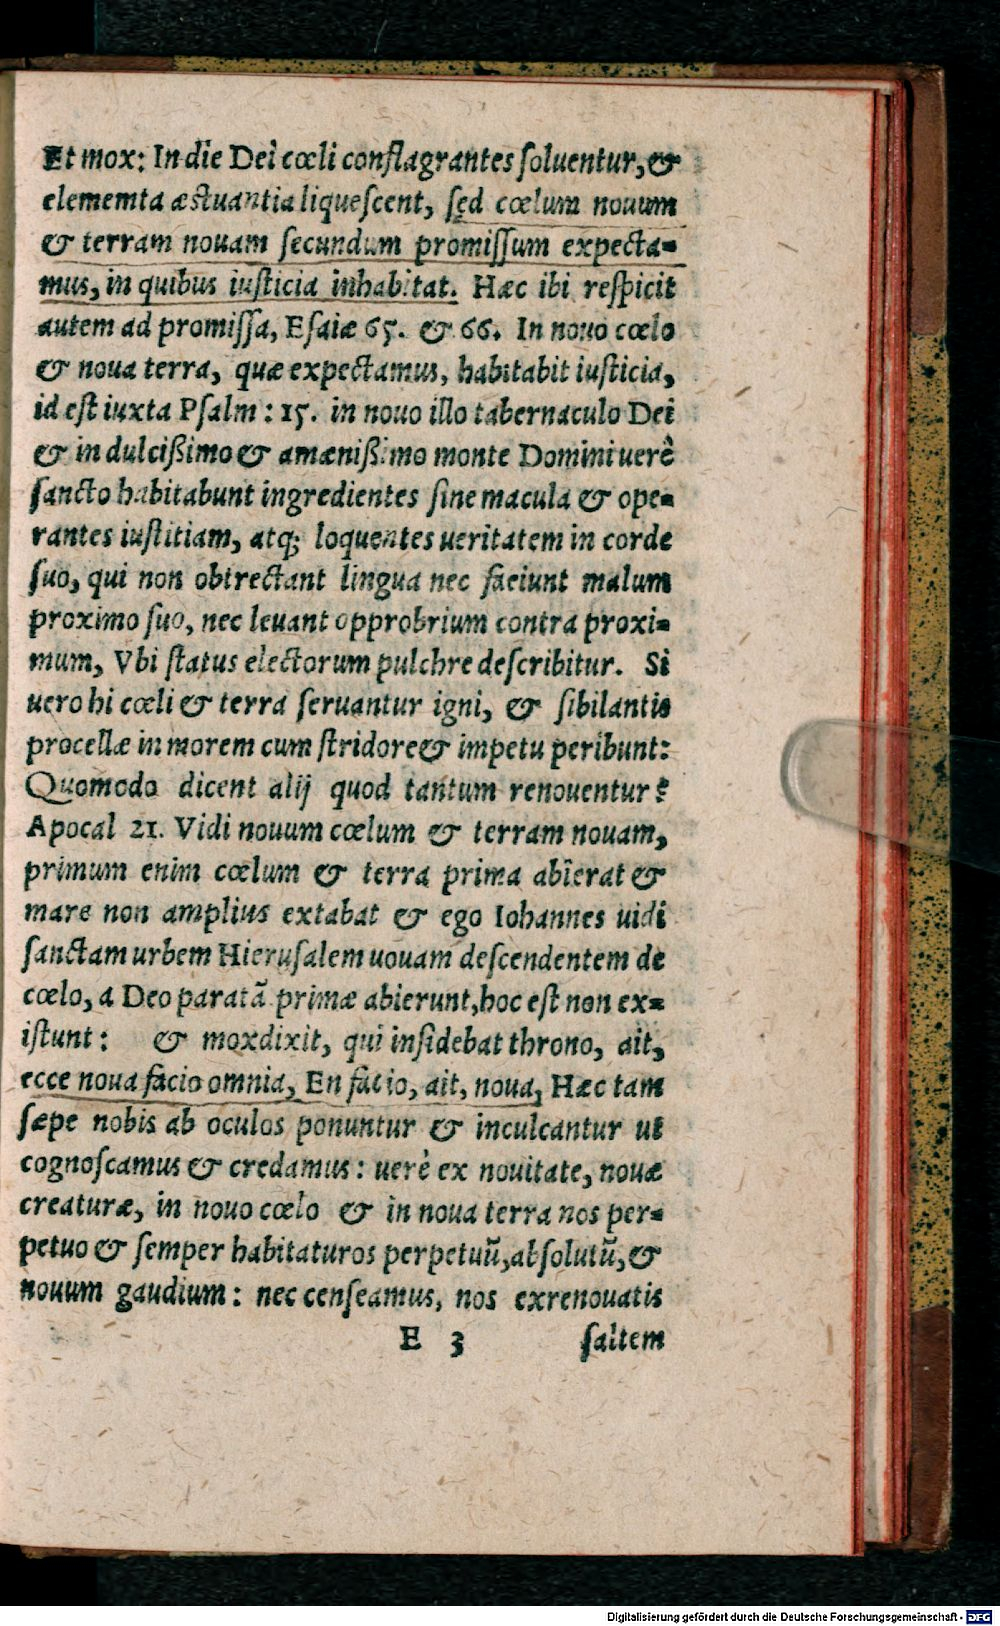 Et mox: In die Dei cœli conflagrantes ſoluentur, &
elememta æstuantia liqueſcent, ſed cœlum nouum
& terram nouam ſecundum promiſſum expecta=
mus, in quibus iuſticia inhabitat. Hæc ibi reſpicit
autem ad promiſſa, Eſaiæ 65. & 66. In nouo cœlo
& noua terra, quæ expectamus, habitabit iuſticia,
id eſt iuxta Pſalm: 15. in nouo illo tabernaculo Dei
& in dulcißimo & amænißimo monte Domini uerè
ſancto habitabunt ingredientes ſine macula & ope=
rantes iuſtitiam, atq; loquentes ueritatem in corde
ſuo, qui non obtrectant lingua nec faciunt malum
proximo ſuo, nec leuant opprobrium contra proxi=
mum, Vbi ſtatus electorum pulchre deſcribitur. Si
uero hi cœli & terra ſeruantur igni, & ſibilantis
procellæ in morem cum ſtridore & impetu peribunt:
Quomodo dicent alij quod tantum renouentur?
Apocal 21. Vidi nouum cœlum & terram nouam,
primum enim cœlum & terra prima abierat &
mare non amplius extabat & ego Iohannes uidi
ſanctam urbem Hieruſalem uouam deſcendentem de
cœlo, a Deo paratã primæ abierunt, hoc eſt non ex=
iſtunt: & mox dixit, qui inſidebat throno, ait,
ecce noua facio omnia, En facio, ait, noua, Hæc tam
ſæpe nobis ab oculos ponuntur & inculcantur ut
cognoſcamus & credamus: uerè ex nouitate, nouæ
creaturæ, in nouo cœlo & in noua terra nos per=
petuo & ſemper habitaturos perpetuũ, abſolutũ, &
nouum gaudium: nec cenſeamus, nos ex renouatis
E 3 ſaltem
Digitalisierung gefördert durch die Deutsche Forschungsgemeinschaft - DFG